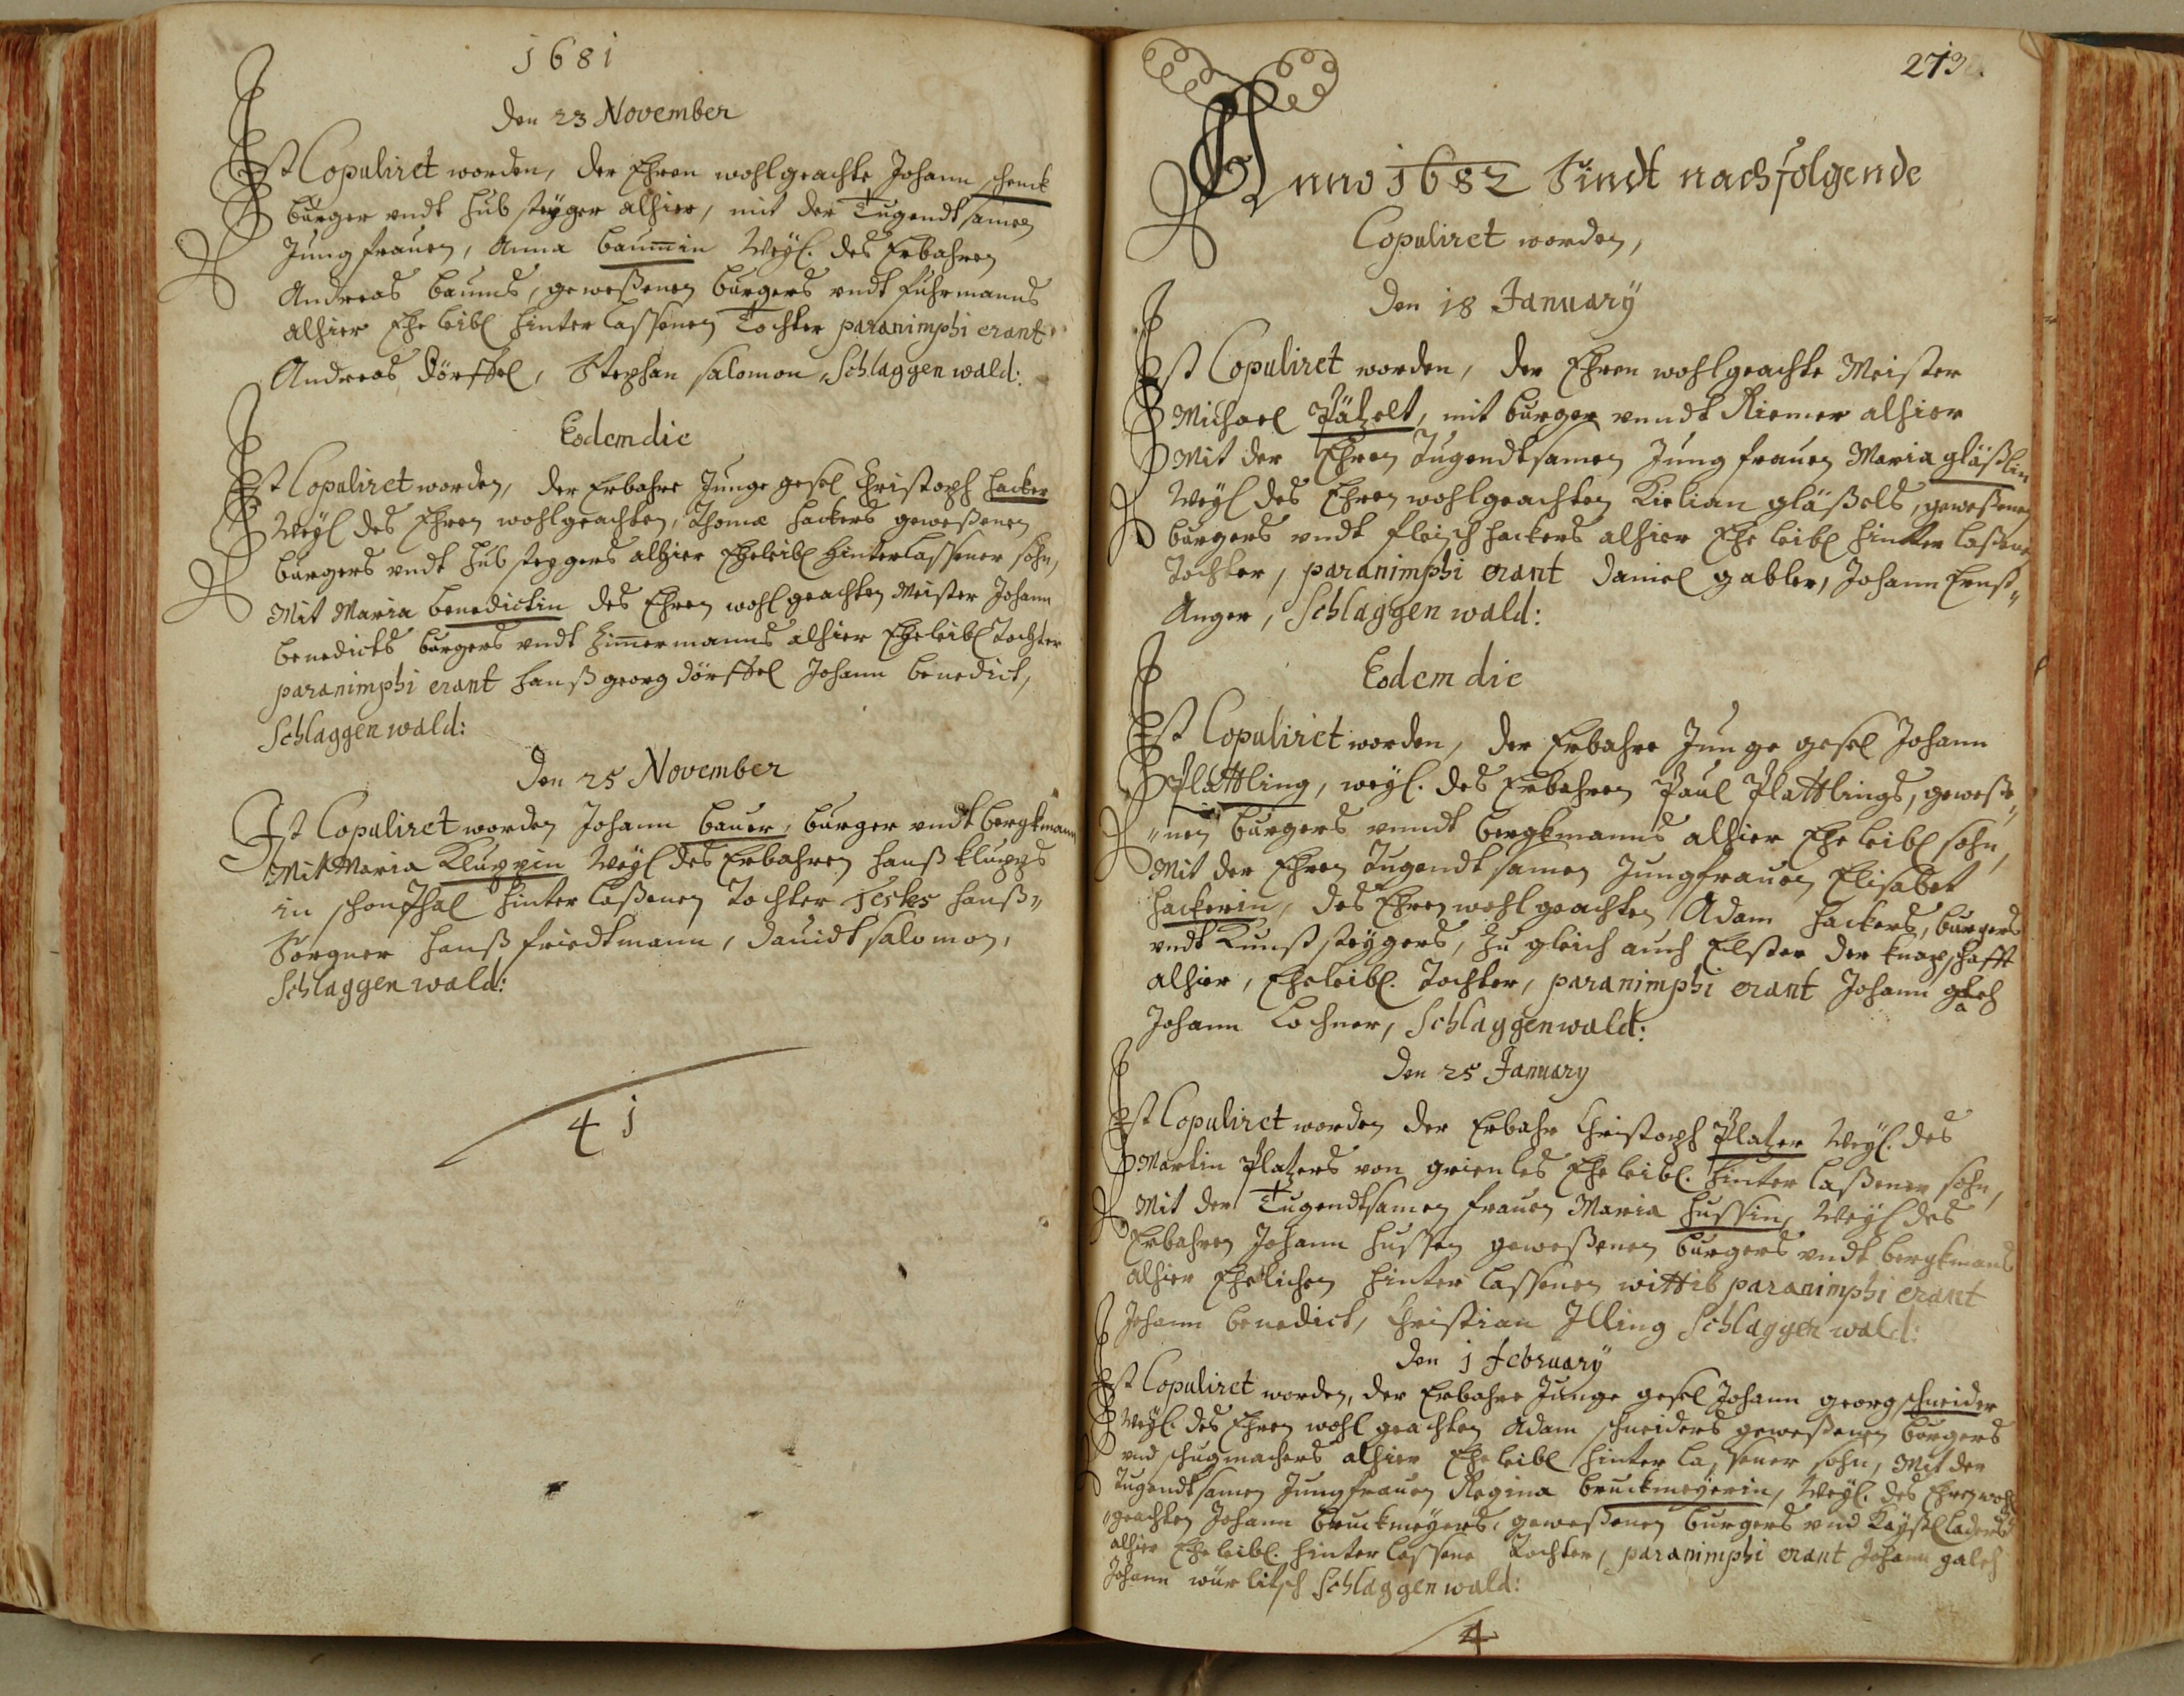 1681
Den 23 November
Ist Copuliret worden, der Ehren wohlgeachte Johann schenck
burger undt Hubsteÿger alhier, mit der Tugendtsamen
Jungfrauen, Anna baumin Weÿl. des Erbahren
Andreas baums, geweßenen burgers undt fuhrmanns
alhier Eheleibl hinterlassenen Tochter paranimphi erant
Andreas Dörffel, Stephan salomon, Schlaggenwald:
Eodem die
Ist Copuliret worden, der Erbahre Junge gesel Christoph hacker
Weÿl des Ehren wohlgeachten, Thomæ hackers geweßenen
burgers undt Hubsteygers alhier Eheleibl hinterlassener sohn,
Mit Maria benedictin des Ehren wohlgeachten Meister Johann
benedicts burgers undt Zimermanns alhier Eheleibl Tochter
paranimphi erant hanß georg dörffel Johann benedict,
Schlaggenwald:
Den 25 November
Ist Copuliret worden Johann bauer, burger undt bergkmann
Mit Maria Kluppin Weÿl des Erbahren hanß klupps
in schonthal hinterlaßenen Tochter Testes hanß„
Sorgner hanß friedtmann, Dauidt salomon,
Schlaggenwald:
41
273
Anno 1682 Sindt nachfolgende
Copuliret worden,
Den 18 Januarÿ
Ist Copuliret worden, der Ehren wohlgeachte Meister
Michael Pätzelt, mit burger unndt Riemer alhier
Mit der Ehren Tugendtsamen Jungfrauen Maria gläßlin
Weÿl des Ehren wohlgeachten Kielian gläßels, geweßenen
burgers undt fleischhackers alhier Eheleibl hinterlaßene
Tochter, paranimphi erant Daniel gabler, Johann Ernst„
Anger, Schlaggenwald:
Eodem die
Ist Copuliret worden, der Erbahre Junge gesel Johann
Plattling, weÿl. des Erbahren Paul Plattlings, geweße„
„nen burgers unndt bergkmanns alhier Eheleibl sohn,
Mit der Ehren Tugendtsamen Jungfrauen Elisabet
hackerin, des Ehren wohlgeachten Adam hackers, burgers
undt Kunststeÿgers, Zu gleich auch Elster der knapschafft
alhier, Eheleibl. Tochter, paranimphi erant Johann
Johann Lochner, Schlaggenwald:
Den 25 January
Ist Copuliret worden der Erbahr Christoph Platzer Weÿl. des
Martin Platzers von grienles Eheleibl. hinterlaßener sohn,
Mit der Tugendtsamen frauen Maria hussin, Weÿl des
Erbahren Johann hussen geweßenen burgers undt bergkmans
alhier Ehelichen hinterlassenen wittib paranimphi erant
Johann benedict, Christian Illing Schlaggenwald:
Den 1 februarÿ
Ist Copuliret worden, der Erbahre Junge gesel Johann georg schneider
Weÿl. des Ehren wohlgeachten Adam schneiders geweßenen burgers
und schugmachers alhier Eheleibl hinterlassener sohn, Mit der
Tugendtsamen Jungfrauen Regina bruckmeÿerin, Weÿl. des Ehren wohl
„geachten Johann bruckmeÿers, geweßenen burgers und
alhier Eheleibl. hinterlassene Tochter, paranimphi erant Johann galeh
Johann würlitsch Schlaggenwald:
4